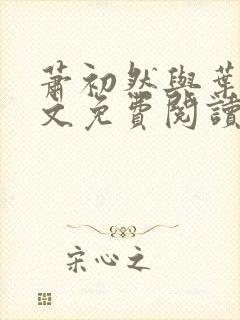 蕭初然與葉
文免費閱讀
宋心之